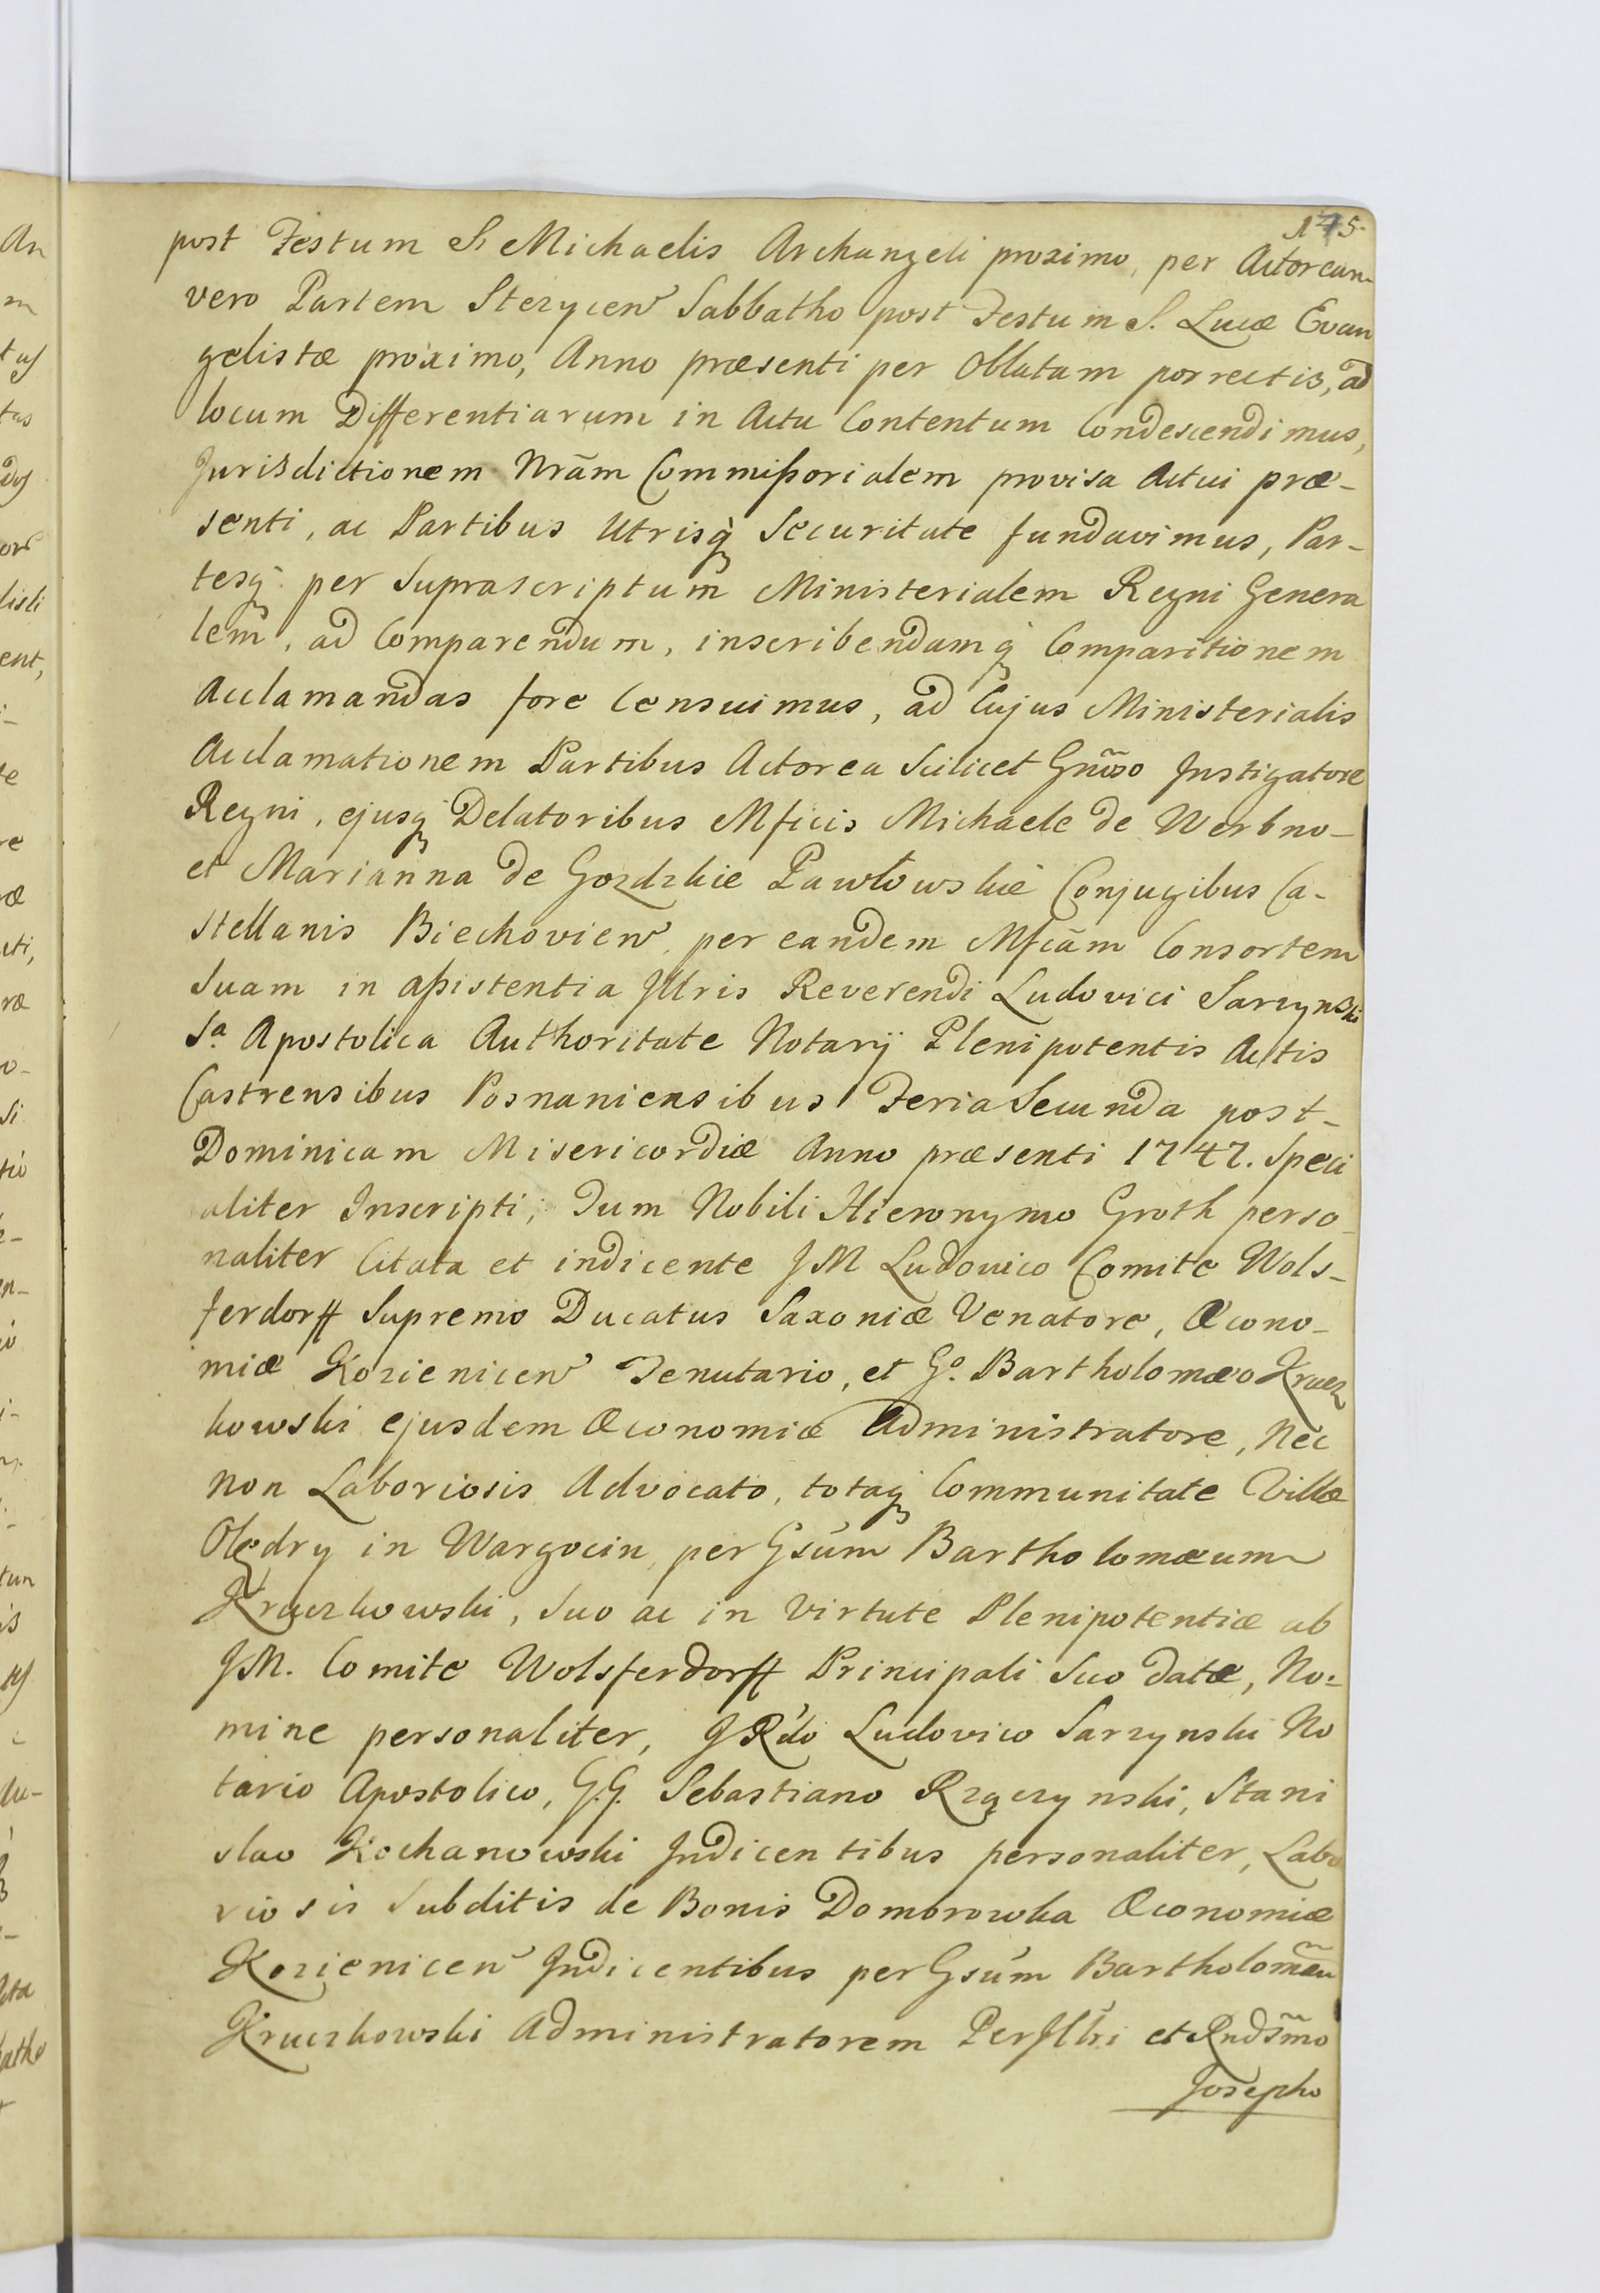 175.
post Festum S. Michaelis Archangeli proximo, per Actoream
vero Partem Stezycen Sabbatho post Festum S. Lucæ Evan
gelistæ proximo, Anno præsenti per Oblatam porrectis, ad
locum Differentiarum in Actu Contentum Condescendimus,
Jurisdictionem Nrãm Commißorialem provisa Actui præ-
senti, ac Partibus Utrisq̀ Securitate fundavimus, Par-
tesq̀ per Suprascriptum Ministerialem Regni Genera
lem, ad Comparendum, inscribendamq̀ Comparitionem
Acclamandas fore Censuimus, ad Cujus Ministerialis
Acclamationem Partibus Actorea Scilicet Gñoso Instigatore
Regni, ejusq̀ Delatoribus Mficis Michaele de Werbno-
et Marianna de Gozdzkie Pawłowskie Conjugibus Ca-
stellanis Biechovien per eandem Mfcãm Consortem
Suam in aßistentia Illris Reverendi Ludovici Sarzynski
Sa. Apostolica Authoritate Notarÿ Plenipotentis Actis
Castrensibus Posnaniensibus Feria Secunda post-
Dominicam Misericordiæ Anno præsenti 1747. Speci
aliter Inscripti, Tum Nobili Hieronymo Groth perso
naliter Citata et indicente JM Ludovico Comite Wols-
ferdorff Supremo Ducatus Saxoniæ Venatore, Œcono-
miæ Kozienicen Tenutario, et Go. Bartholomæo Krucz
kowski ejusdem Œconomiæ Administratore, Nec
non Laboriosis Advocato, totaq̀ Communitate Villæ
Olędry in Wargocin per Gsum Bartholomæum
Kruczkowski, Suo ac in Virtute Plenipotentiæ ab
JM. Comite Wolsferdorff Principali Suo datæ, No-
mine personaliter, J Rdo Ludovico Sarzynski No
tario Apostolico, G.G. Sebastiano Rzączynski, Stani
slao Kochanowski Indicentibus personaliter, Labo
riosis Subditis de Bonis Dombrowka Œconomiæ
Kozienicen Indicentibus per Gsum Bartholomæũ
Kruczkowski Administratorem PerIllri et Rndsm̃o
Josepho